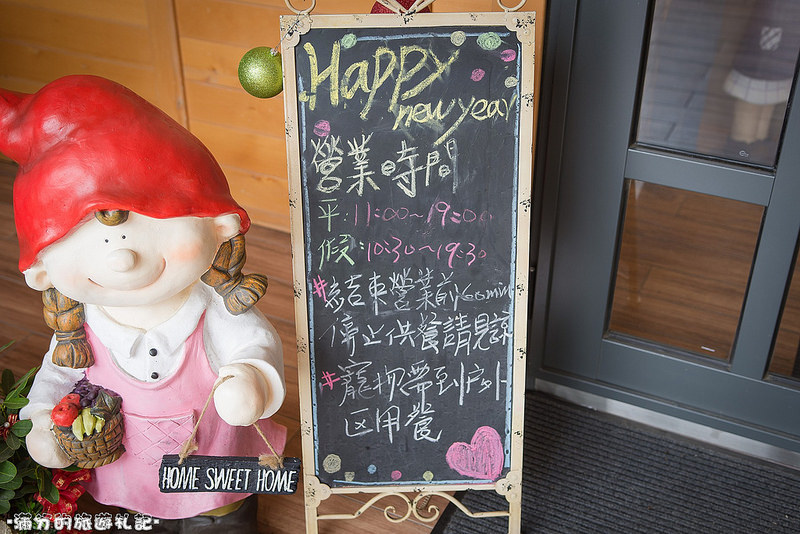 Happy
new year
營業時間
平:11:00~19:00
假:10:30~19:30
#結束營業前60min
停止供餐請見諒
#寵物帶到戶外
區用餐
HOME SWEET HOME
·滿分的旅遊札記·